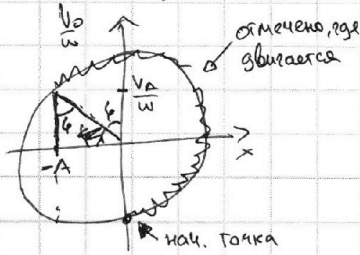 V₀/ω
отмечено, где
двигается
V_A/ω
φ
φ
-A
x
нач. точка